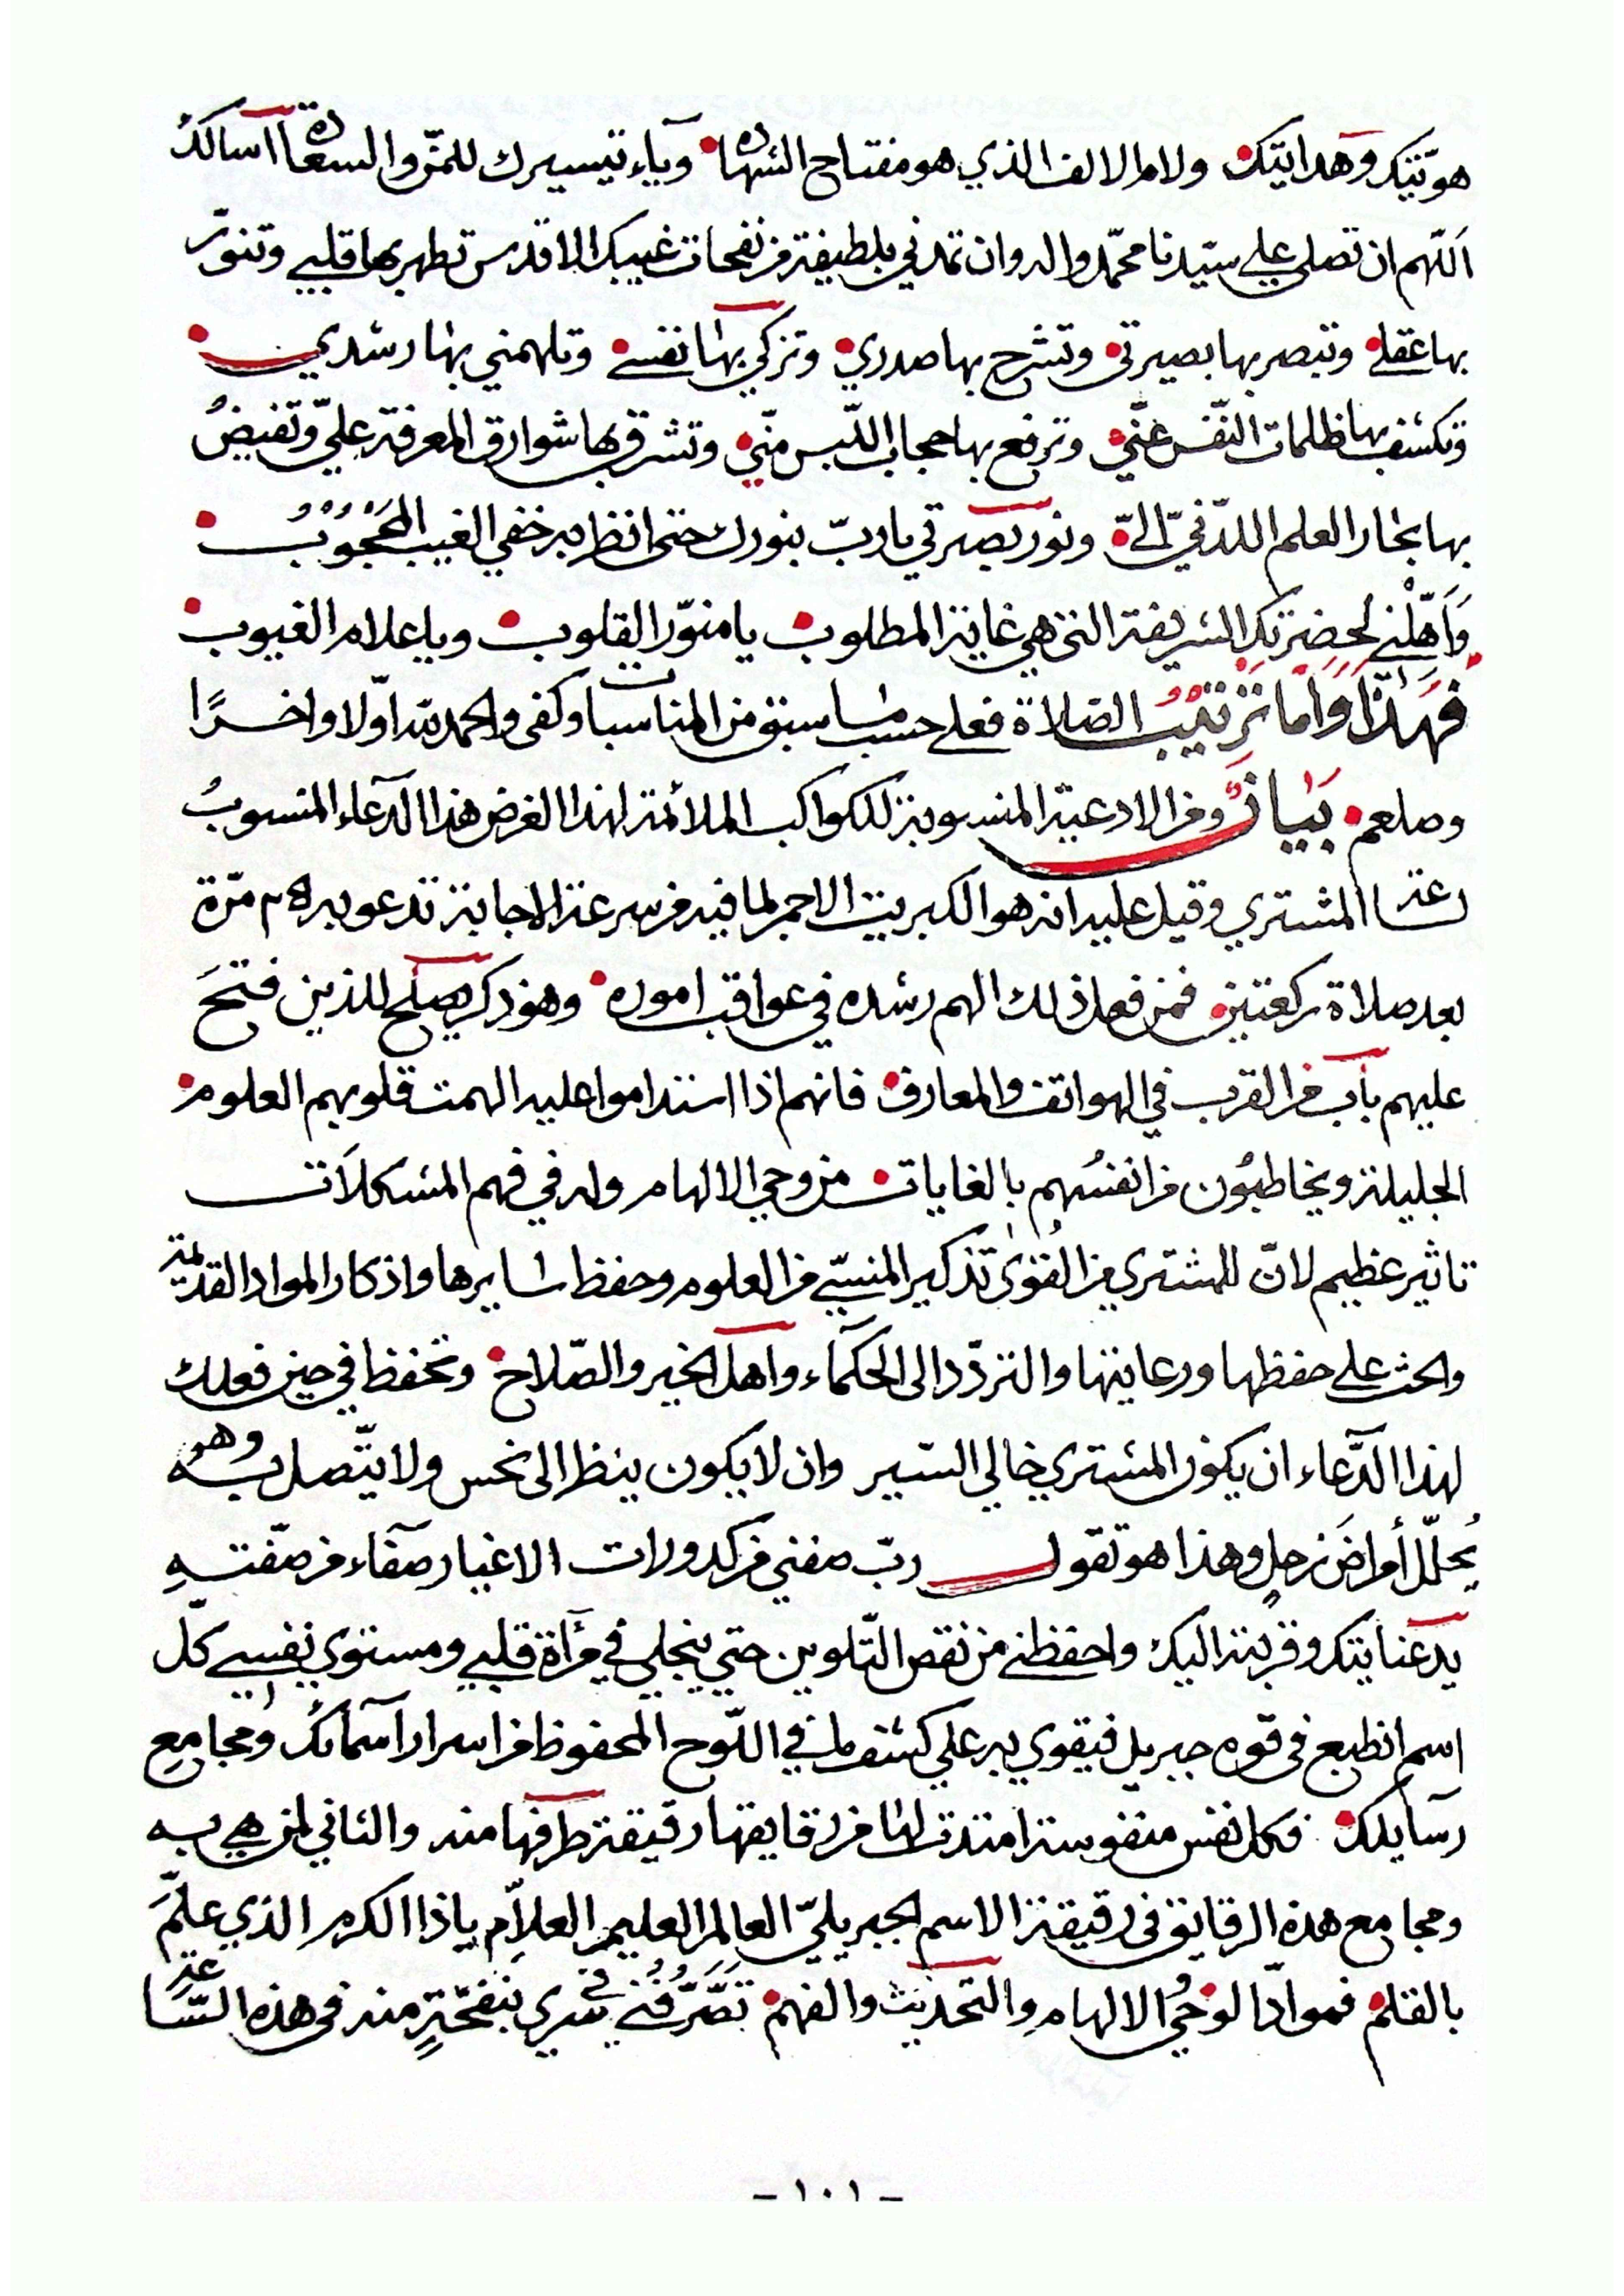 هويتك وهدايتك ولام الالف الذي هو مفتاح الشهادة وياء تيسيرك للمن والسعادة أسألك
اللهم ان تصلي علي سيّدنا محمّد واله وان تمدني بلطيفة من نفحات غيبك الاقدس تطهر بها قلبي وتنوّر
بها عقلي وتبصر بها بصيرتي وتشرح بها صدري وتزكي بها نفسي وتلهمني بها رشدي
وتكشف بها ظلمات النّفس عنّي وترفع بها حجاب اللّبس منّي وتشرق بها شوارق المعرفة عليّ وتفيضُ
بها بحار العلم اللدنّي اليّ ونور بصرتي يا ربّ بنورك حتى انظر به خفي الغيب المَحْجُوبُ
وَاَهّلْني لحضرتك الشريفة التي هي غاية المطلوب يا منوّر القلوب ويا علام الغيوب
فهَذَا وَامّا تَرْتيْبُ الصّلاة فعلى حسب ما سبق من المناسبات وكفى والحمد لله اوّلا واخرًا
وصلعم بَيَانٌ ومن الادعية المنسوبة للكواكب الملائمة لهذا الغرض هذا الدّعاء المنسوبُ
لساعة المشتري وقيل عليه انه هو الكبريت الاحمر لما فيه من سرعة الاجابة تدعو به ٢٥ مرّة
بعد صلاة ركعتين فمن فعل ذلك الهم رشده في عواقب اموره وهو ذكر يصلح للذين فتحَ
عليهم باب من القرب في الهواتف والمعارف فانهم اذا استداموا عليه الهمت قلوبهم العلوم
الجليلة ويخاطبُون من انفسُهم بالغايات من وحي الالهام وله في فهم المشكلات
تاثير عظيم لانّ للمشتري من القوى تذكير المنسيّ من العلوم وحفظ سايرها واذكار المواد القديمة
والحث على حفظها ورعايتها والتردّد الى الحكماء واهل الخير والصّلاح وتحفظ في حين فعلك
لهذا الدّعاء ان يكون المشتري خالي السّير وان لا يكون ينظر الى نحس ولا يتّصل به وهو
يُحلّل أمراضَ زحل وهذا هو تقول ربّ صفني من كدورات الاغيار صفاء من صفّته
يد عنايتك وقربته اليك واحفظني من نقص التّلوين حتي ينجلي في مرآة قلبي ومستوي نفسي كلّ
اسم انطبع في قوه جبريل فيقوي به علي كشف ما في اللّوح المحفوظ من اسرار اسمائك ومجامع
رسايلك فكل نفس منفوسة امتدت لها من رقايقها رقيقة طرفها منه والثاني لمن هي به
ومجامع هذه الرقايق في رقيقة الاسم الجبريليّ العالم العليم العلاّم ياذا الكرم الذي علّمَ
بالقلم فموادّ الوحي الالهام والتحديث والفهم تَصَرّفْني في سري بنفحةٍ منه في هذه السّاعة
- ١٠١ -